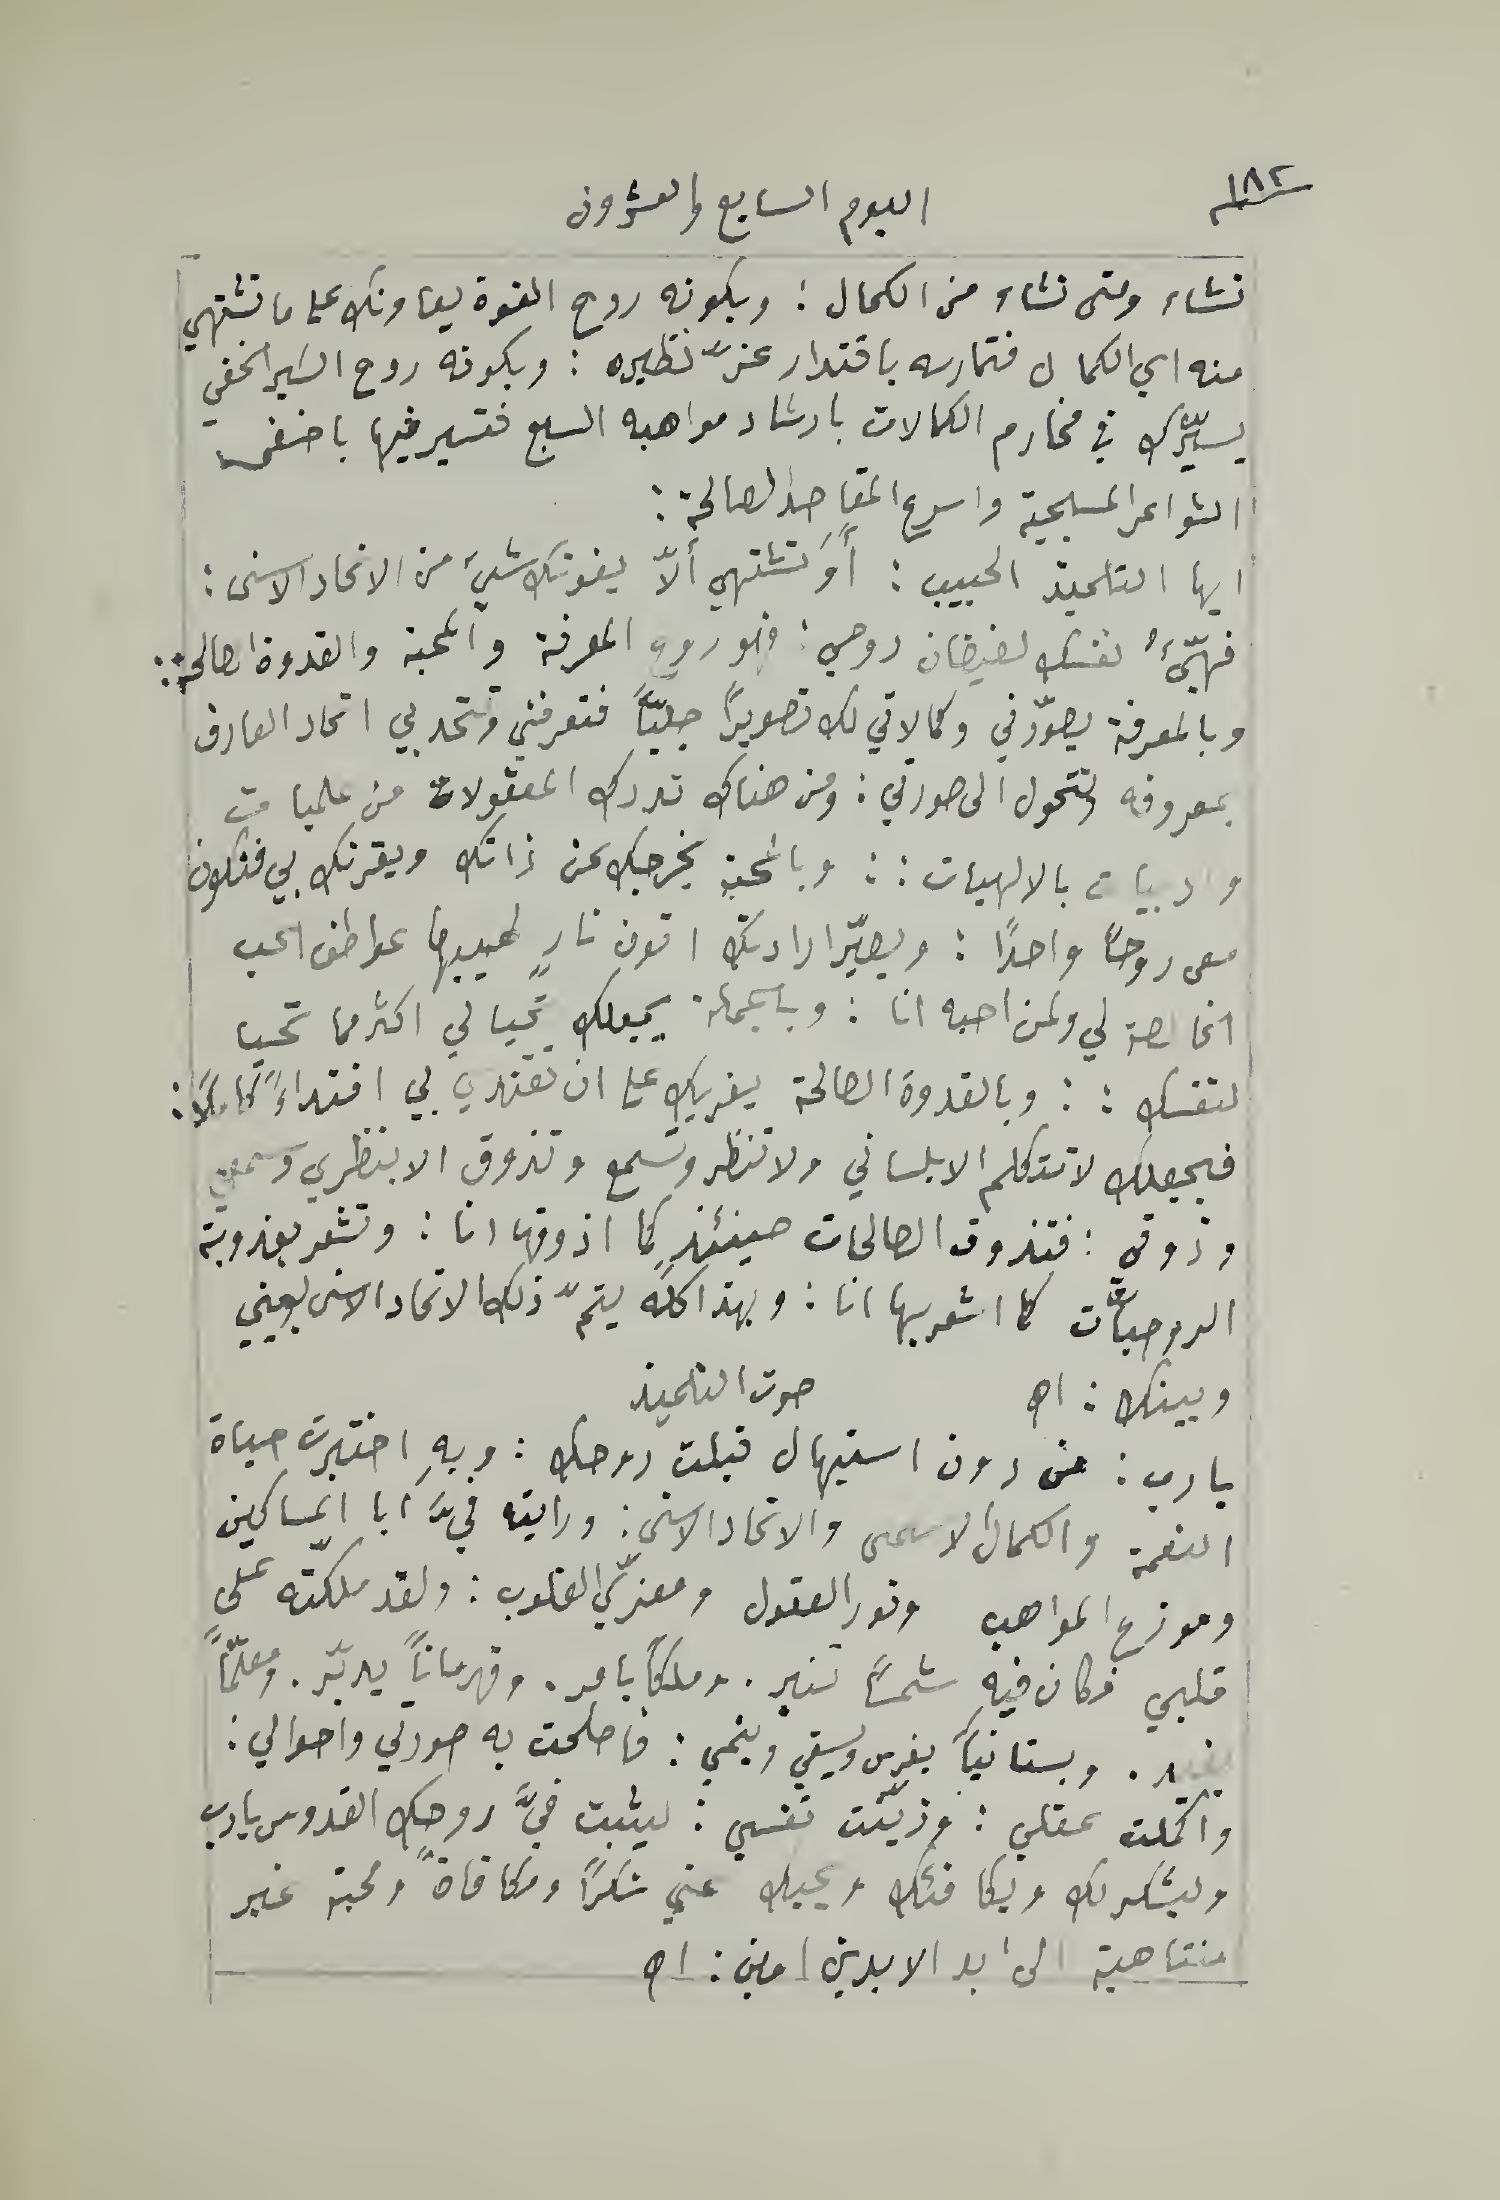 ١٨٢
اليوم السابع والعشرون
تشاء ومتى تشاء من الكمال : وبكونه روح القوة يعاونك على ما تشتهي
منه اي الكمال فتمارسه باقتدار عزّ نظيره : وبكونه روح السَير الخفي
يسيّرك في مخارم الكمالات بارشاد مواهبه السبع فتسير فيها باخفى
الشواعر المسيحية واسرع المقاصد الصالحة :
ايها التلميذ الحبيب : أوَتشتهي ألاّ يفوتك شيء من الاتحاد الاسنى :
فهيّئ نفسك لفيضان روحي : فهو روح المعرفة والمحبة والقدوة الصالحة :
وبالمعرفة يصوّرني وكمالاتي لك تصويرًا جليّاً فتعرفني وتتحد بي اتحاد العارف
بمعروفه وتتحول الى صورتي : ومن هناك تدرك المعقولات من علميات
وادبيات بالالهيات : : وبالمحبة يخرجك عن ذاتك ويقرنك بي فتكون
معي روحًا واحدًا : ويصيّر ارادتك اتون نارٍ لهيبها عواطف الحب
الخالصة لي ولمن احبه انا : وبالجملة يجعلك تحيا لي اكثر مما تحيا
لنفسك : : وبالقدوة الصالحة يغريك على ان تقتدي بي اقتداءً كاملاً :
فيجعلك لا تتكلم الا بلساني ولا تنظر وتسمع وتذوق الا بنظري وسمعي
وذوقي : فتذوق الصالحات حينئذٍ كما اذوقها انا : وتشعر بعذوبة
الروحيّات كما اشعر بها انا : وبهذا كله يتمّ ذلك الاتحاد الاسنى بيني
وبينك : اه
صوت التلميذ
يا رب : من دون استيهال قبلت روحك : وبهِ اختبرت حياة
النعمة والكمال الاسمى والاتحاد الاسنى : ورايته فيَّ أبا المساكين
وموزع المواهب ونور العقول ومعزّي القلوب : ولقد ملّكته على
قلبي فكان فيهِ شمسًا تنير . وملكًا يامر . وقهرمانًا يدبّر . ومعلّمًا
يفيد . وبستانيًا يغرس ويسقي وينمي : فاصلحت به صورتي واحوالي :
واكملت عقلي : وزيّنت نفسي : ليثبت فيَّ روحك القدوس يا رب
وليشكرك ويكافئك ويحبك عني شكرًا ومكافاةً ومحبة غير
متناهية الى ابد الابدين امين : اه